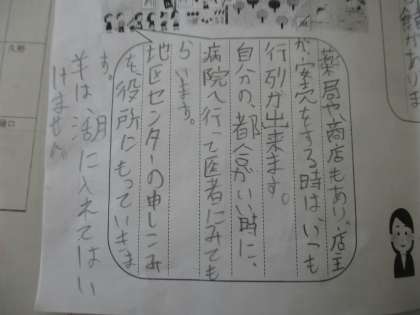 薬局や商店もあり、店主
が案売をする時は、いつも
行列が出来ます。
自分の、都合がいい時に、
病院へ行って医者にみても
らいます。
地区センターの申しこみ
を役所にもっていきま
す。
羊は、湖に入れてはい
けません。